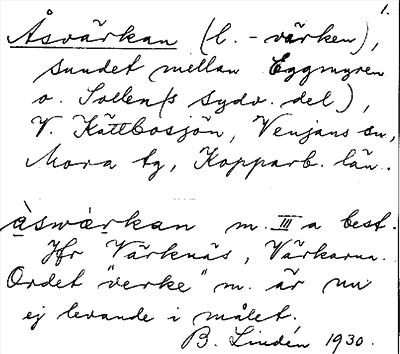 1.
Åsvärkan (l. -värken),
sundet mellan Eggmyren
o. Sollen(s sydv. del),
V. Kättbosjön, Venjans sn,
Mora tg, Kopparb. län.
åswærkan m. III a best.
Jfr Värknäs, Värkarna.
Ordet "verke" m. är nu
ej levande i målet.
B. Lindén 1930.